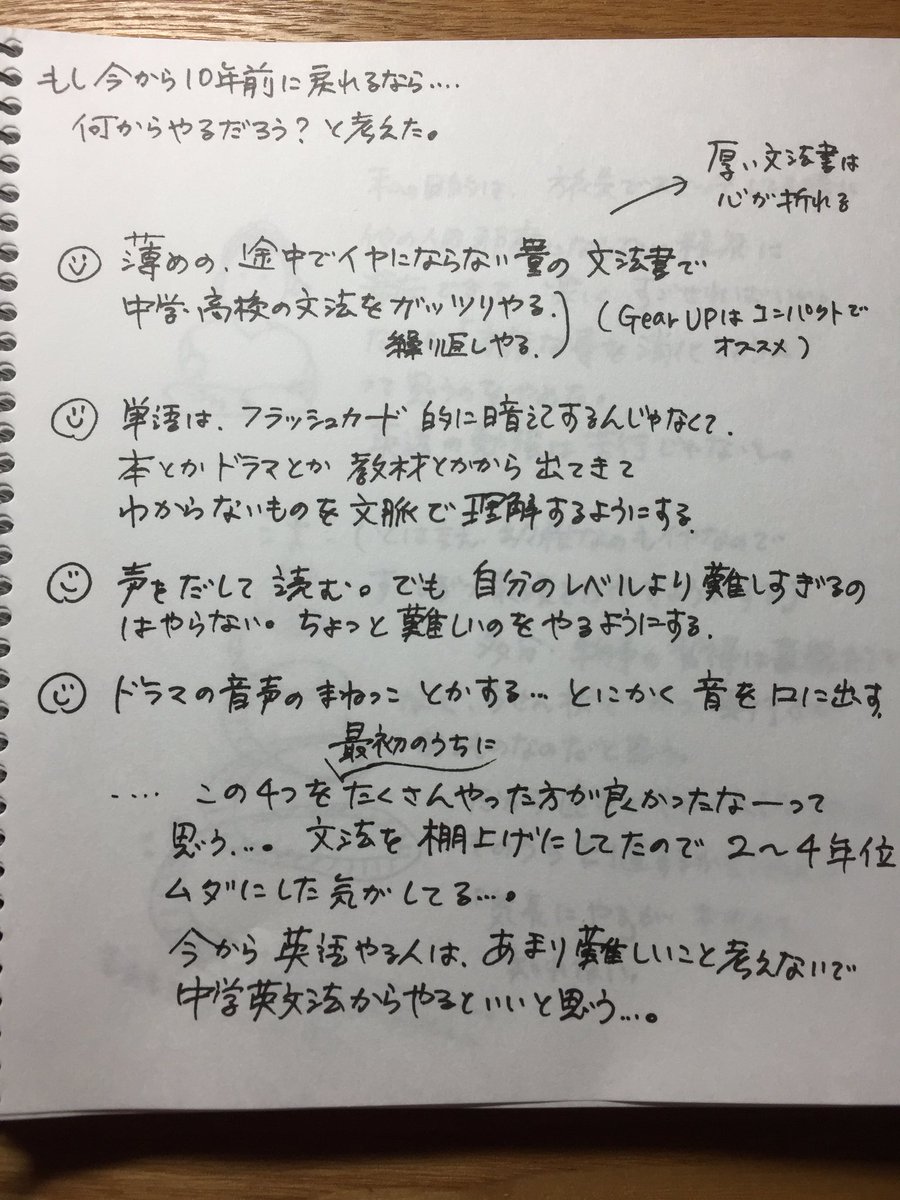 もし今から10年前に戻れるなら‥‥
何からやるだろう?と考えた。
厚い文法書は
心が折れる
薄めの、途中でイヤにならない量の文法書で
中学・高校の文法をガッツリやる、
繰り返しやる、
(Gear UPはコンパクトで
オススメ)
単語は、フラッシュカード的に暗記するんじゃなくて、
本とかドラマとか教材とかから出てきて
わからないものを文脈で理解するようにする、
声をだして読む。でも自分のレベルより難しすぎるの
はやらない。ちょっと難しいのをやるようにする、
ドラマの音声のまねっことかする… とにかく音を口に出す、
最初のうちに
‥‥ この4つをたくさんやった方が良かったなーって
思う…。文法を棚上げにしてたので2〜4年位
ムダにした気がしてる…。
今から英語やる人は、あまり難しいこと考えないで
中学英文法からやるといいと思う…。